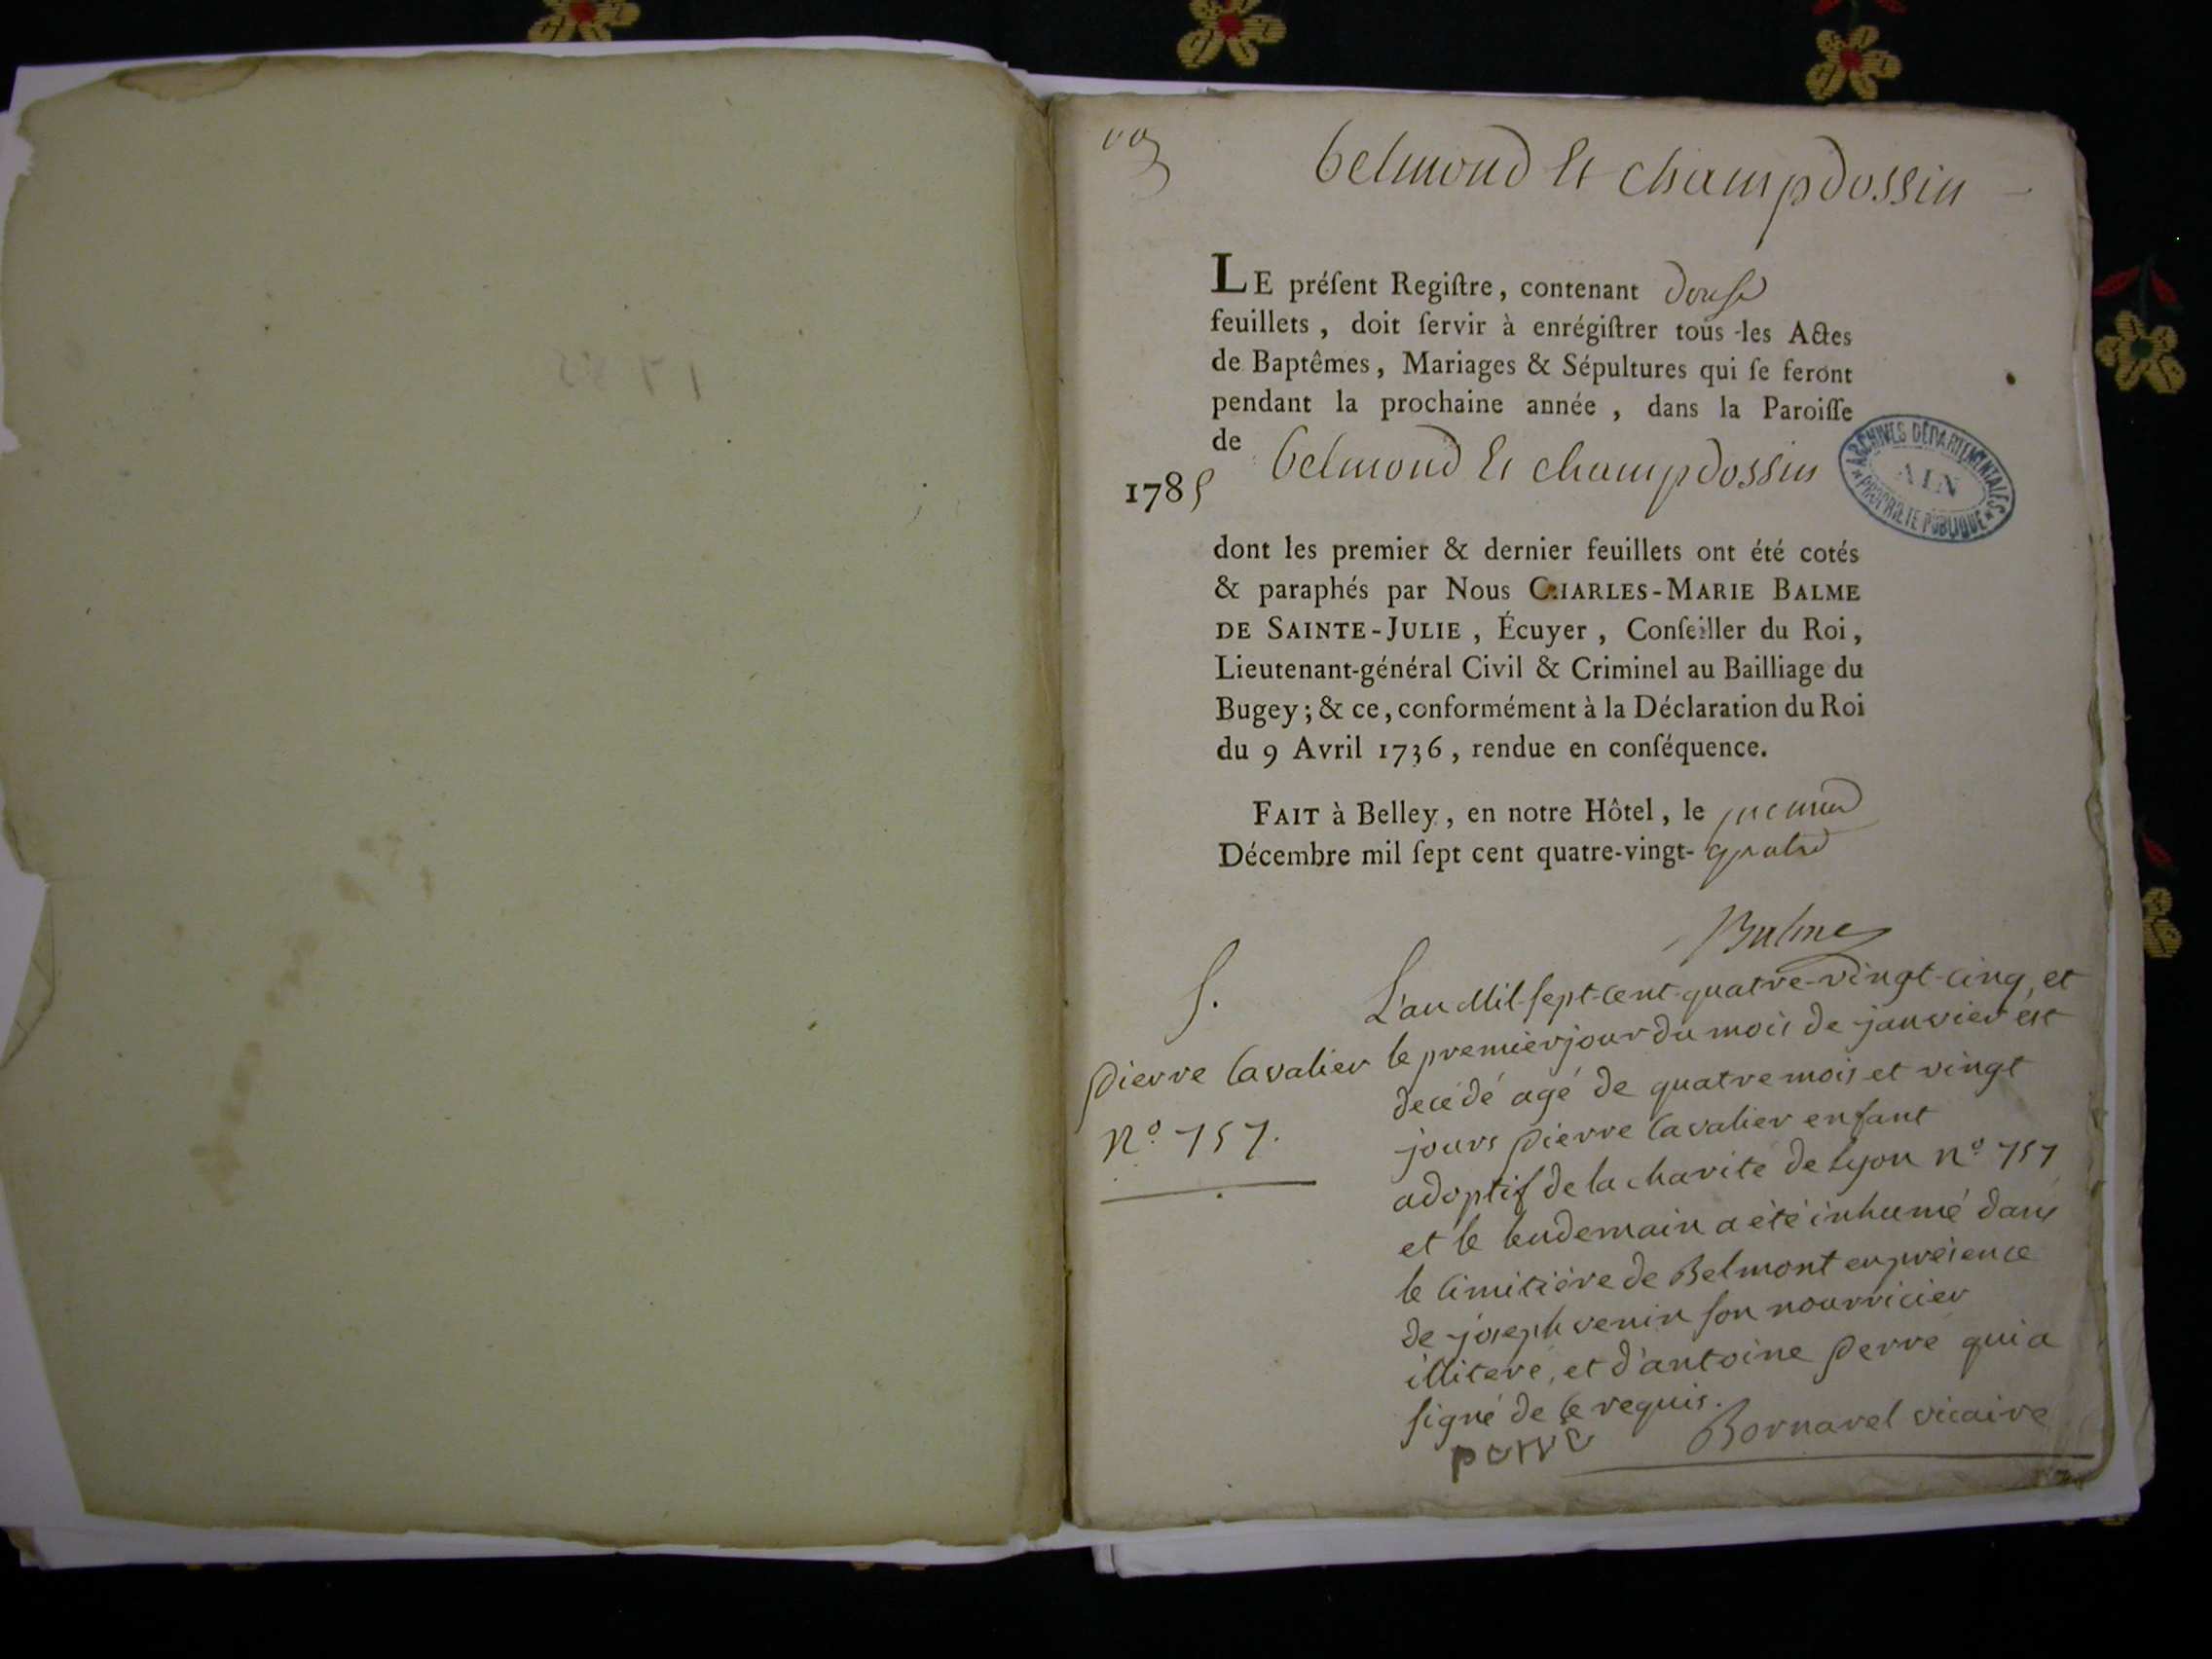 belmond et champdossin
LE préſent Regiſtre, contenant douse
feuillets, doit ſervir à enrégiſtrer tous les Actes
de Baptêmes, Mariages & Sépultures qui ſe feront
pendant la prochaine année, dans la Paroiſſe
de belmond et champdossin
1785
ARCHIVES DÉPARTEMENTALES
AIN
PROPRIÉTÉ PUBLIQUE
dont les premier & dernier feuillets ont été cotés
& paraphés par Nous CHARLES-MARIE BALME
DE SAINTE-JULIE, Écuyer, Conſeiller du Roi,
Lieutenant-général Civil & Criminel au Bailliage du
Bugey; & ce, conformément à la Déclaration du Roi
du 9 Avril 1736, rendue en conſéquence.
FAIT à Belley, en notre Hôtel, le premier
Décembre mil ſept cent quatre-vingt-quatre
Balme
S.
pierre Cavalier
N.º 757.
L'an Mil-sept-cent-quatre-vingt-cinq, et
le premier jour du mois de janvier est
decédé agé de quatre mois et vingt
jours pierre Cavalier enfant
adoptif de la charité de Lyon nº 757
et le lendemain a été inhumé dans
le cimitiére de Belmont en présence
de joseph venin son nourricier
illiteré, et d'antoine perre qui a
signé de ce requis.
perre Bornarel vicaire